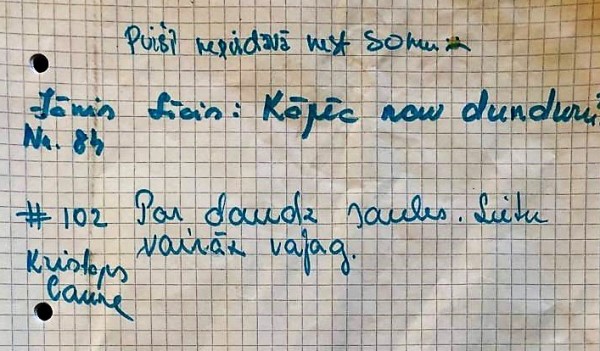 Puiši nepiedāvā nest somu
Jānis Līcis: Kāpēc nav dunduru
Nr. 84
# 102 Par daudz saules. Lietu
vairāk vajag.
Kristaps
Caune